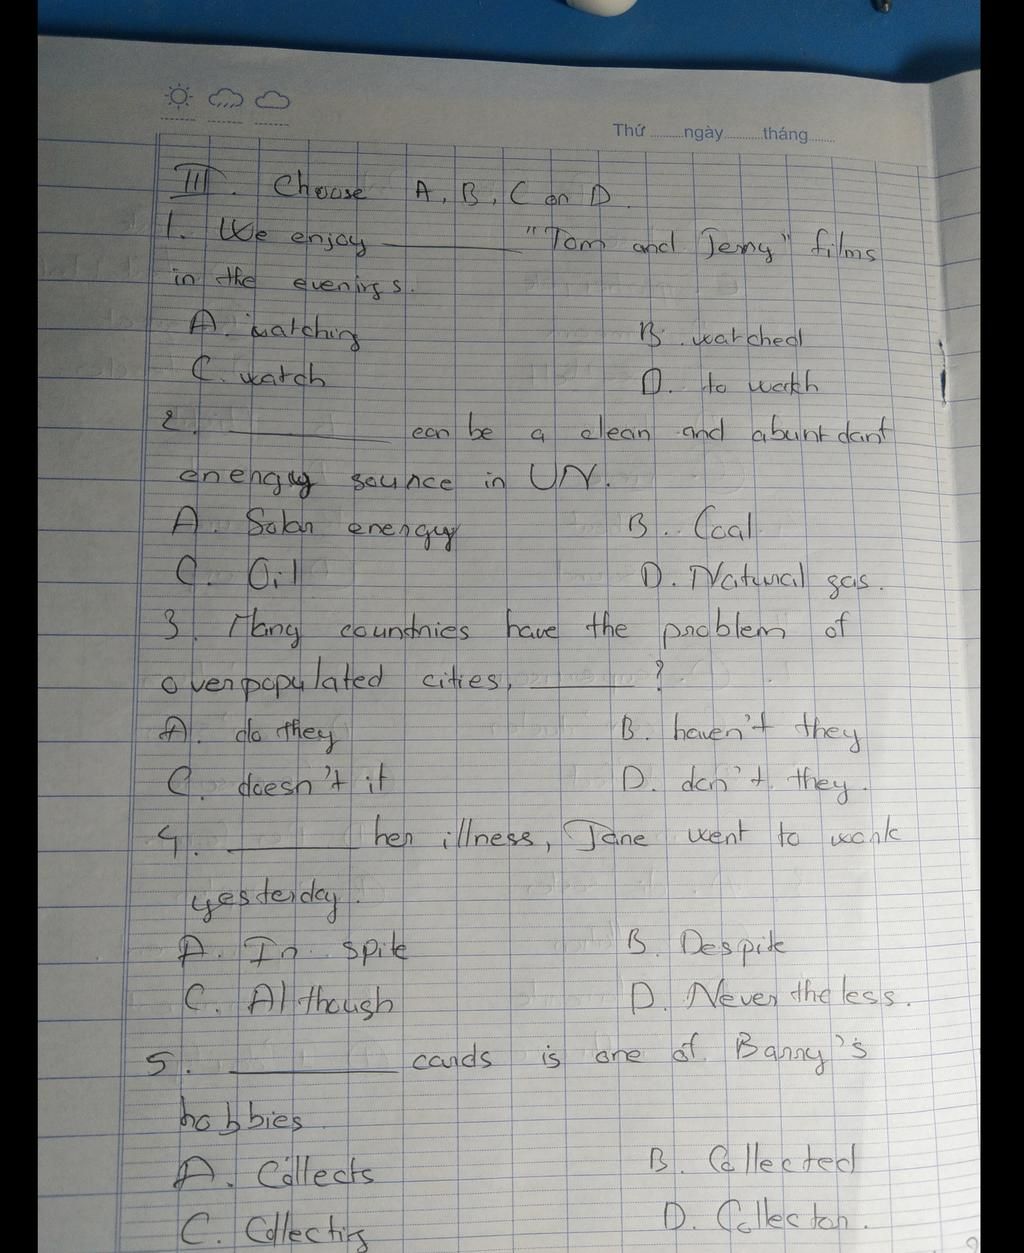 Thứ ........ ngày ........ tháng ........
III. Choose A, B, C or D.
1. We enjoy ________ "Tom and Jerry" films
in the evenings.
A. watching B. watched
C. watch D. to watch
2. ________ can be a clean and abuntdant
energy source in VN.
A. Solar energy B. Coal
C. Oil D. Natural gas.
3. Many countries have the problem of
overpopulated cities, ________?
A. do they B. haven't they
C. doesn't it D. don't they.
4. ________ her illness, Jane went to work
yesterday.
A. In spite B. Despite
C. Although D. Never the less.
5. ________ cards is one of Barry's
hobbies
A. Collects B. Collected
C. Collecting D. Collector.